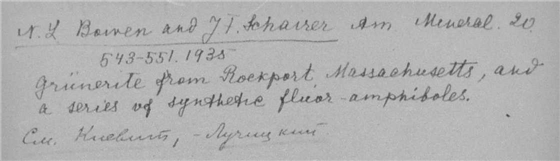 N. L Bowen and J. F. Schairer Am Mineral. 20,
543-551. 1935
Grünerite from Rockport Massachusetts, and
a series of synthetic fluor-amphiboles.
См. Киевит, - Лучицкий